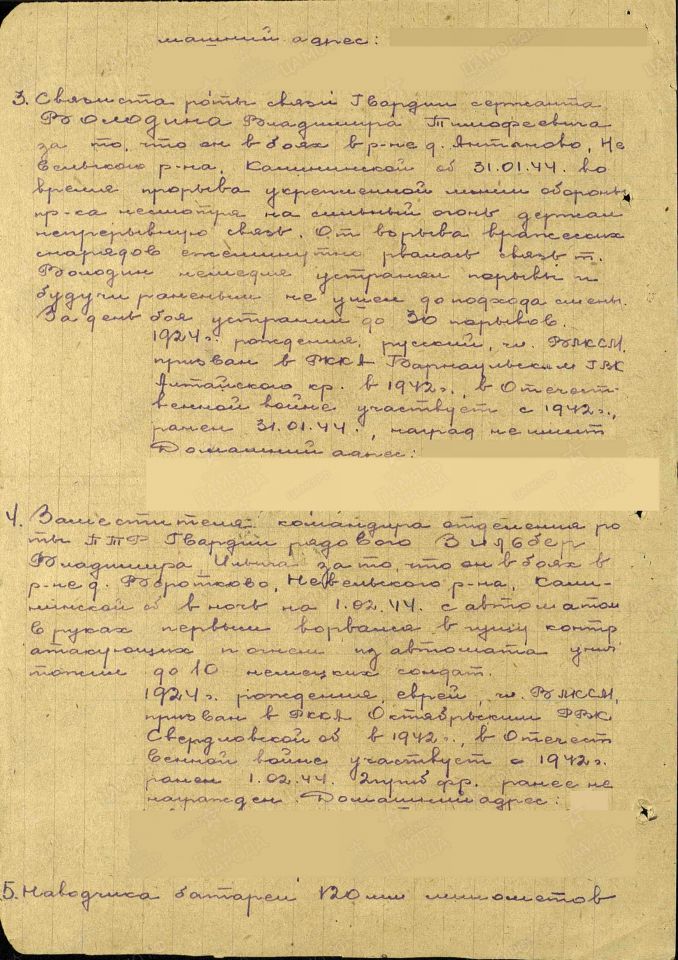 машний адрес:
3. Связиста роты связи Гвардии сержанта
Володина Владимира Тимофеевича
за то, что он в боях в р-не д. Антаново, Не
вельского р-на, Калининской об 31.01.44. во
время прорыва укрепленной линии обороны
пр-ка несмотря на сильный огонь держал
непрерывную связь. От взрыва вражеских
снарядов ежеминутно рвалась связь т.
Володин немедля устранял порывы и
будучи раненым не ушел до подхода смены.
За день боя устранил до 30 порывов.
1924 г. рождения, русский, чл. ВЛКСМ,
призван в РККА Барнаульским ГВК
Алтайского кр. в 1942 г., в Отечест-
венной войне участвует с 1942 г.,
ранен 31.01.44., наград не имеет
Домашний адрес:
4. Заместителя командира отделения ро
ты ПТР Гвардии рядового Зильбер
Владимира Ильича за то, что он в боях в
р-не д. Воротково, Невельского р-на, Кали-
нинской об в ночь на 1.02.44. с автоматом
в руках первым ворвался в гущу контр
атакующих и огнем из автомата унич
тожил до 10 немецких солдат.
1924 г. рождения, еврей, чл. ВЛКСМ,
призван в РККА Октябрьским РВК
Свердловской об в 1942 г., в Отечест
венной войне участвует с 1942 г.
ранен 1.02.44. 2 фр. ранее не
награжден. Домашний адрес:
5. Наводчика батареи 120 мм минометов